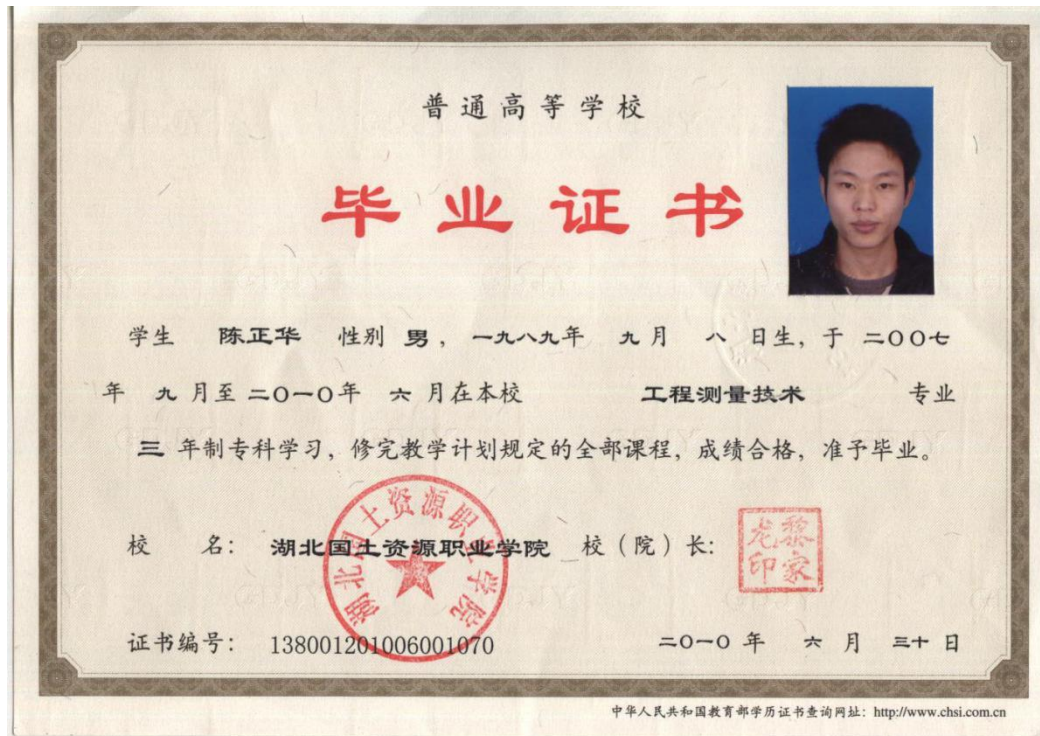 普通高等学校
毕业证书
学生 陈正华 性别 男，一九八九年 九月 八 日生，于 二〇〇七
年 九 月至 二〇一〇年 六 月在本校 工程测量技术 专业
三 年制专科学习，修完教学计划规定的全部课程，成绩合格，准予毕业。
湖北国土资源职业学院
校 名： 湖北国土资源职业学院 校（院）长：
黎家龙印
证书编号： 138001201006001070 二〇一〇 年 六 月 三十 日
中华人民共和国教育部学历证书查询网址：http://www.chsi.com.cn